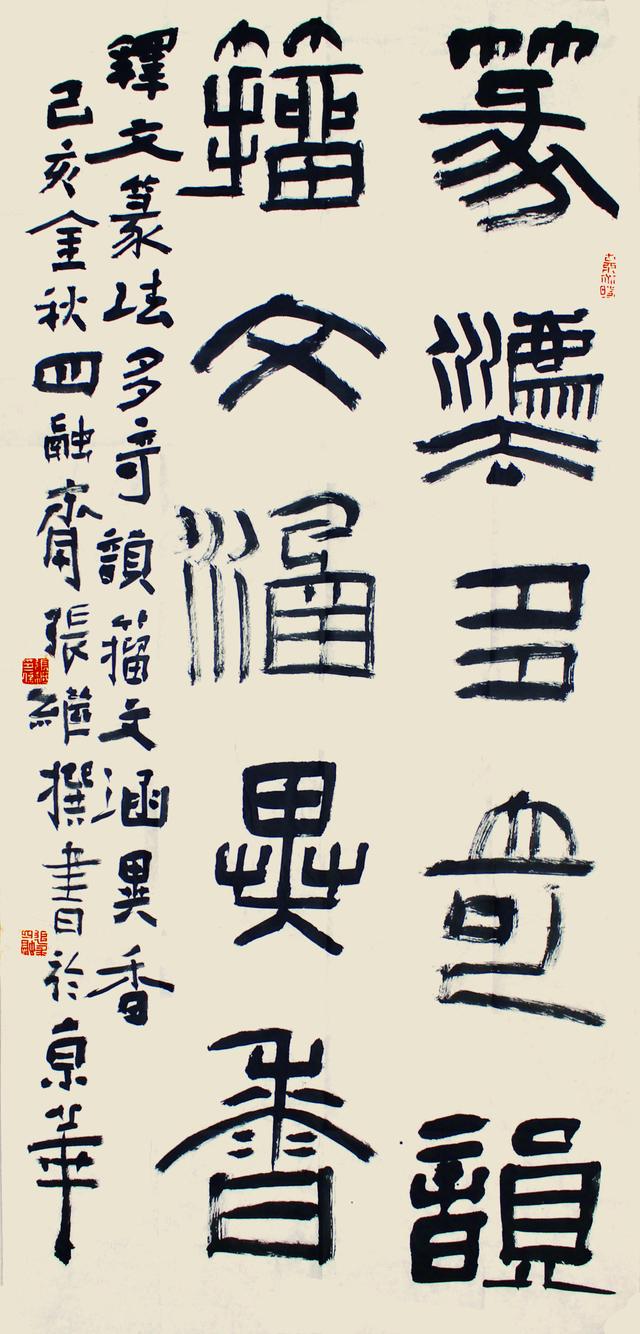 篆灋多奇韻
籀文涵異香
釋文篆法多奇韻籀文涵異香
己亥金秋四融齋張繼撰書於京華